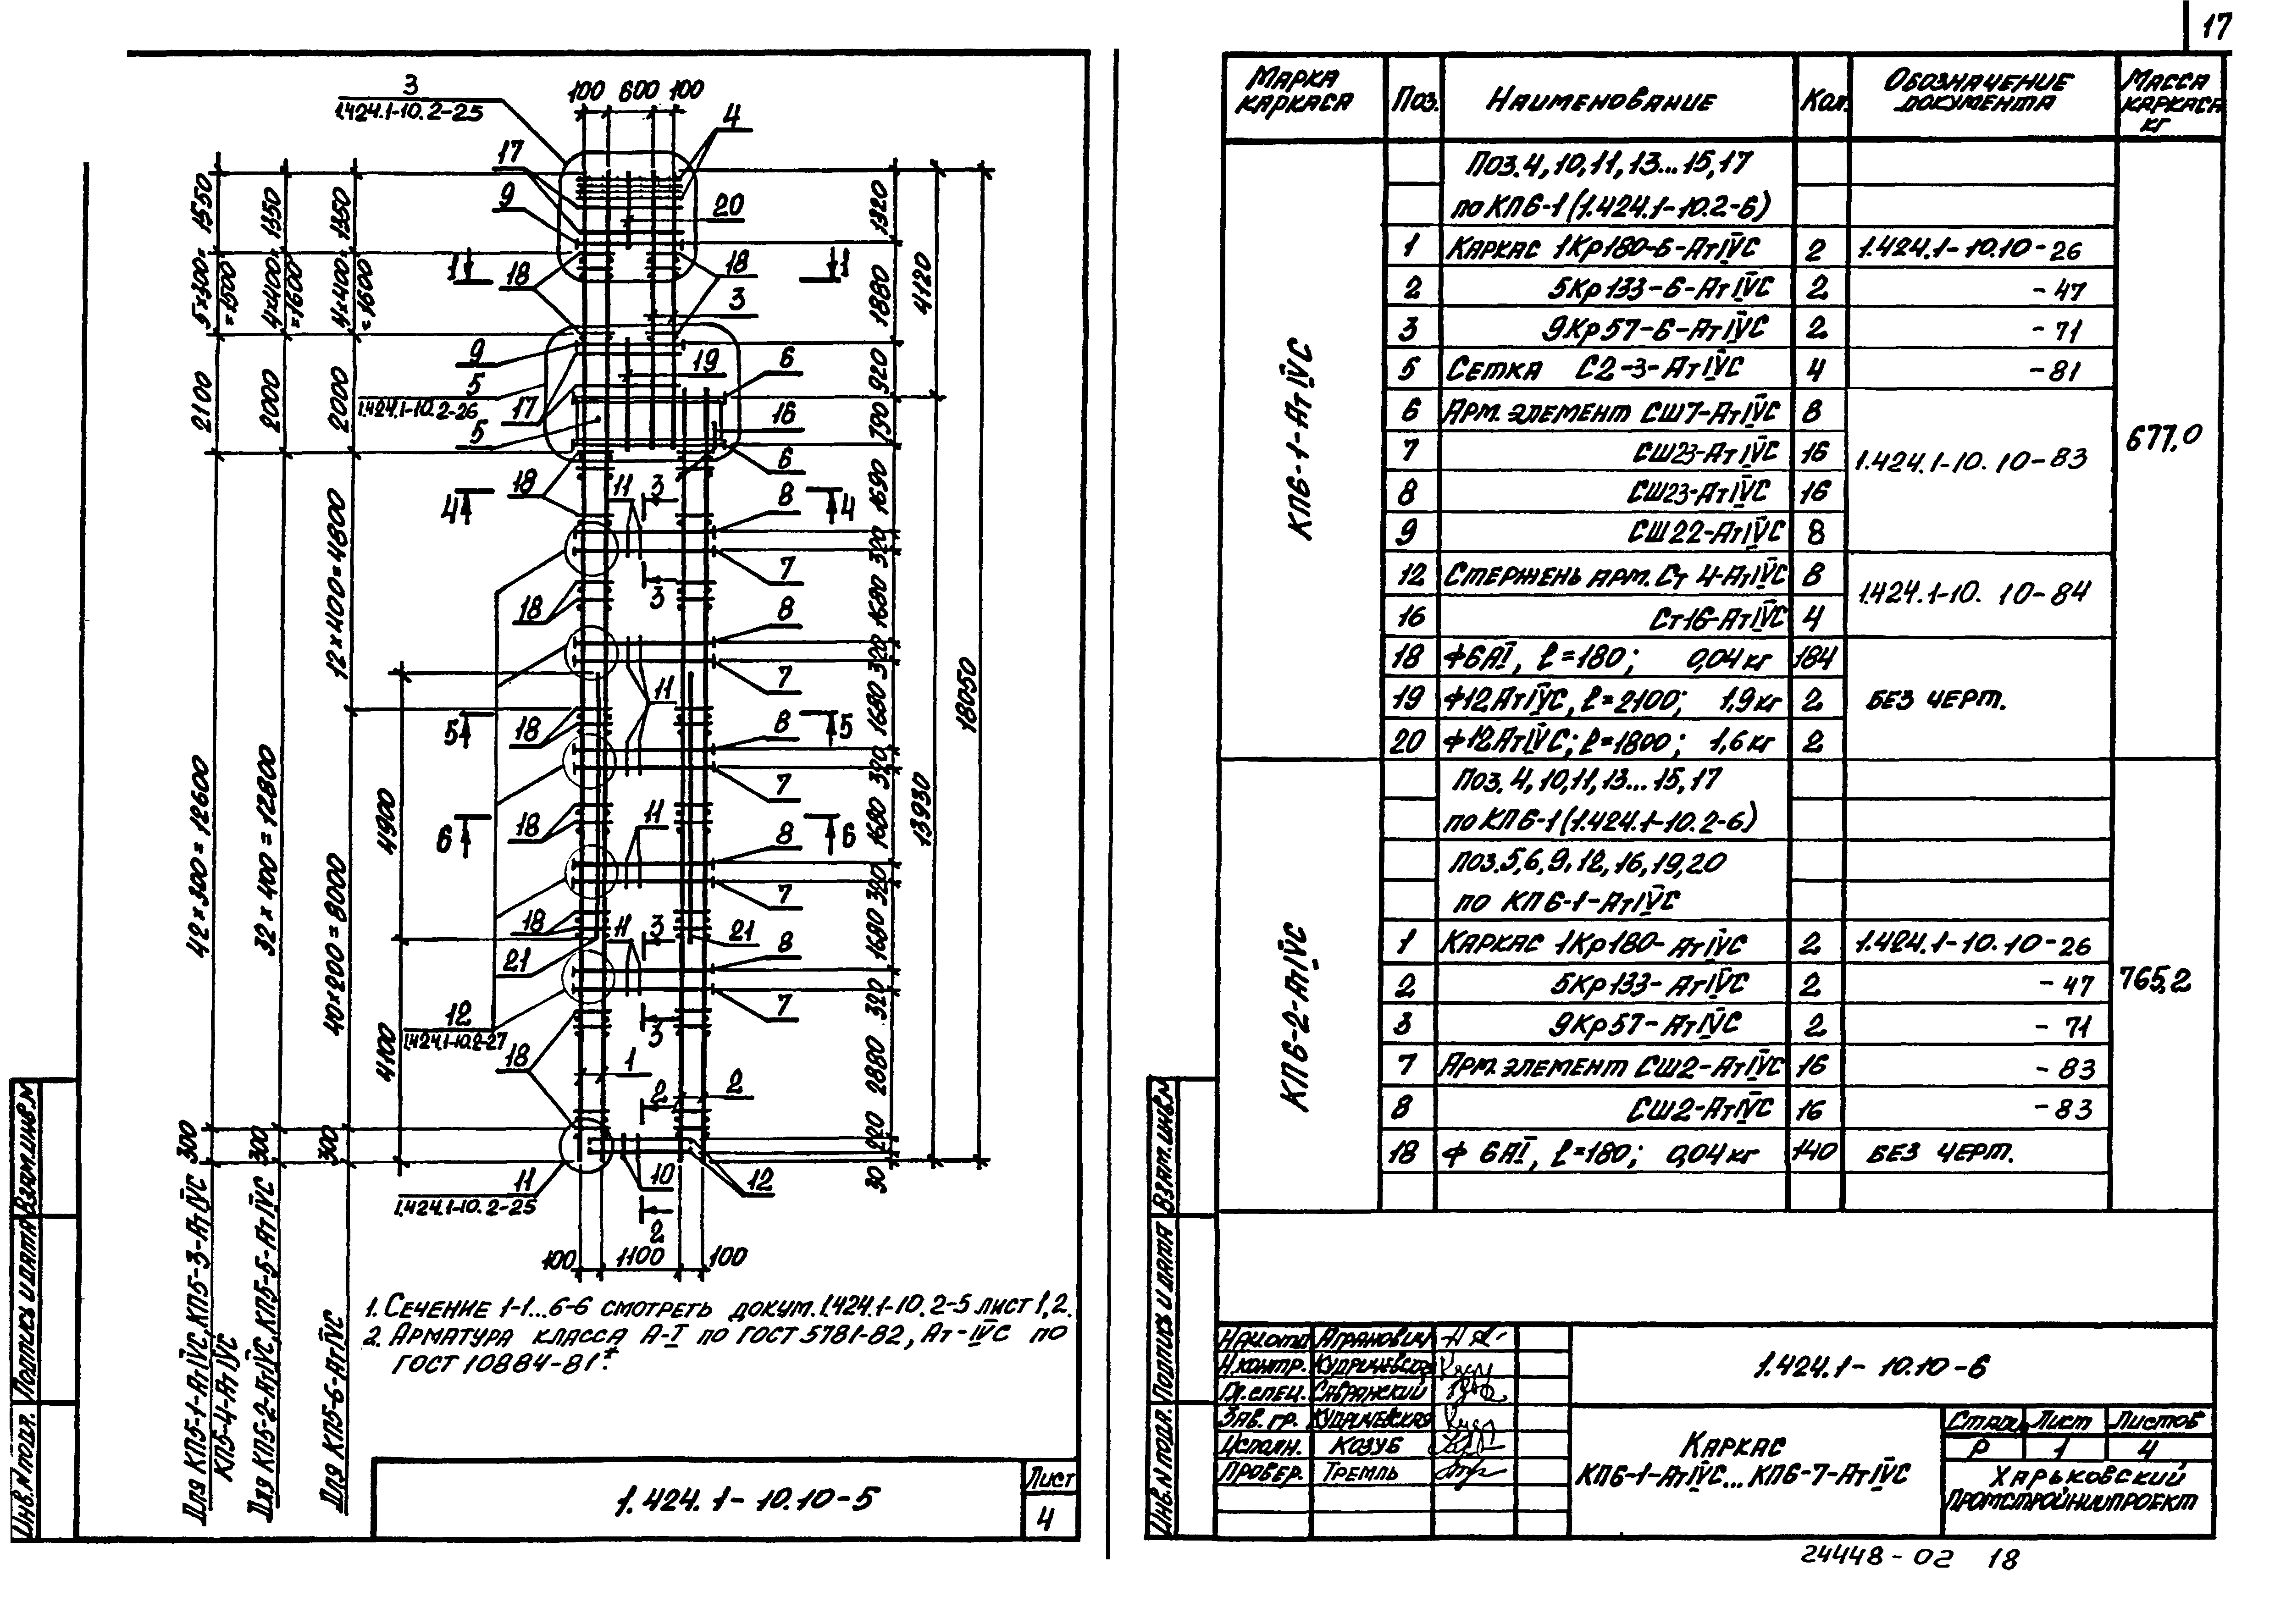 17
3
1.424.1-10.2-25
100 600 100
4
17
9
20
18
18
1
1
3
9
5
1.424.1-10.2-26
19
6
17
16
5
6
18
11
3
8
4
4
7
3
18
8
7
11
5
18
8
5
7
6
18
11
8
6
7
18
11
3
21
8
21
7
12
1.424.1-10.2-27
3
18
1
2
2
11
1.424.1-10.2-25
10
12
2
100 1100 100
1550
5×300=
=1500
2100
42×300=12600
300
1350
4×400=
=1600
2000
32×400=12800
300
1350
4×400=
=1600
2000
12×400=4800
40×200=8000
300
4900
4100
1320
1880
920
790
1690
320
1680
320
1680
320
1680
320
1680
320
2880
220
30
4120
13930
18050
Для КП5-1-АтIVС, КП5-3-АтIVС
КП5-4-АтIVС
Для КП5-2-АтIVС, КП5-5-АтIVС
Для КП5-6-АтIVС
1. Сечение 1-1...6-6 смотреть докум. 1.424.1-10.2-5 лист 1,2.
2. Арматура класса А-I по ГОСТ 5781-82, Ат-IVС по
ГОСТ 10884-81*.
1.424.1-10.10-5
Лист
4
Взам.инв.N
Подпись и дата
Инв.N подл.
Марка каркаса Поз. Наименование Кол. Обозначение документа Масса каркаса кг
КП6-1-АтIVС
Поз. 4, 10, 11, 13...15, 17
по КП6-1 (1.424.1-10.2-6)
1 Каркас 1Кр180-Б-АтIVС 2 1.424.1-10.10-26
2 5Кр133-Б-АтIVС 2 -47
3 9Кр57-Б-АтIVС 2 -71
5 Сетка С2-3-АтIVС 4 -81
6 Арм. элемент СШ7-АтIVС 8
7 СШ23-АтIVС 16 1.424.1-10.10-83
677,0
8 СШ23-АтIVС 16
9 СШ22-АтIVС 8
12 Стержень арм. Ст 4-АтIVС 8 1.424.1-10.10-84
16 Ст16-АтIVС 4
18 Ф6АI, ℓ=180; 0,04кг 184
19 Ф12АтIVС, ℓ=2100; 1,9кг 2 без черт.
20 Ф12АтIVС; ℓ=1800; 1,6кг 2
КП6-2-АтIVС
Поз. 4, 10, 11, 13...15, 17
по КП6-1 (1.424.1-10.2-6)
Поз. 5, 6, 9, 12, 16, 19, 20
по КП6-1-АтIVС
1 Каркас 1Кр180-АтIVС 2 1.424.1-10.10-26
2 5Кр133-АтIVС 2 -47
765,2
3 9Кр57-АтIVС 2 -71
7 Арм. элемент СШ2-АтIVС 16 -83
8 СШ2-АтIVС 16 -83
18 Ф 6АI, ℓ=180; 0,04кг 140 без черт.
Взам.инв.N
Подпись и дата
Инв.N подл.
Нач.отд. Агранович
Н.контр. Кудричевская
Гл.спец. Сабранский
Зав. гр. Кудричевская
Исполн. Козуб
Провер. Тремль
1.424.1-10.10-6
Каркас
КП6-1-АтIVС... КП6-7-АтIVС
Стад. Лист Листов
Р 1 4
Харьковский
Промстройниипроект
24448-02 18